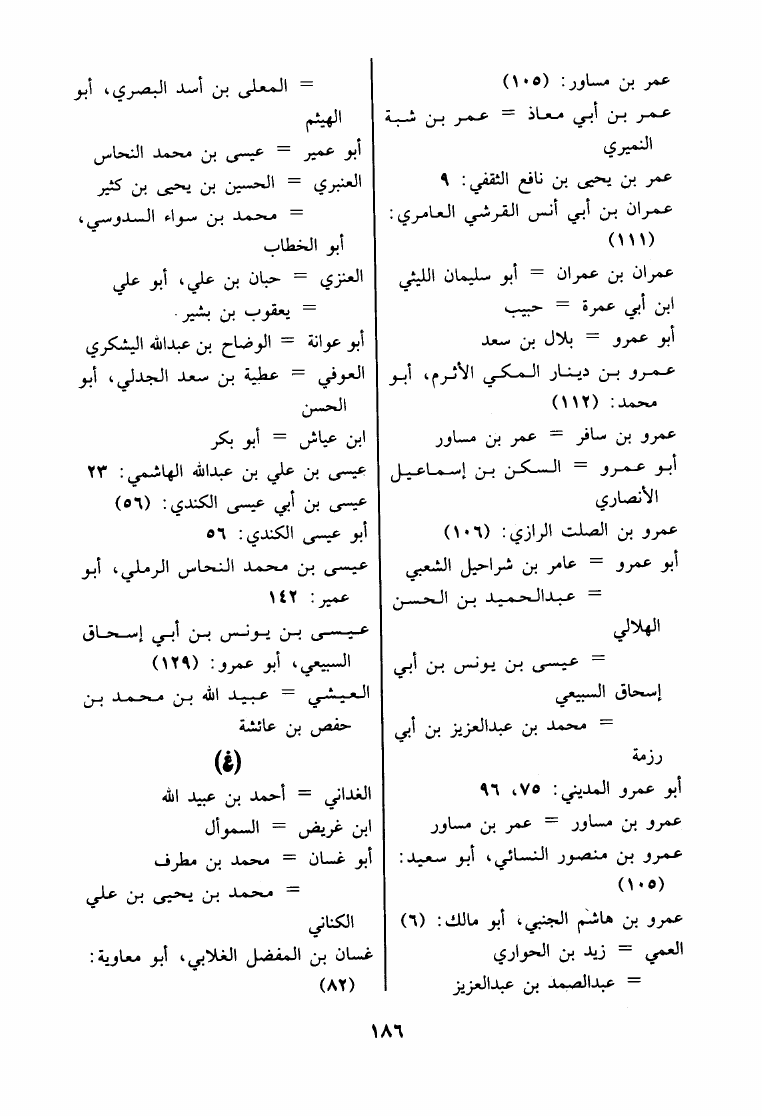 عمر بن مساور: (١٠٥)
عمر بن أبي معاذ = عمر بن شبة
النميري
عمر بن يحيى بن نافع الثقفي: ٩
عمران بن أبي أنس القرشي العامري:
(١١١)
عمران بن عمران = أبو سليمان الليثي
ابن أبي عمرة = حبيب
أبو عمرو = بلال بن سعد
عمرو بن دينار المكي الأثرم، أبو
محمد: (١١٢)
عمرو بن سافر = عمر بن مساور
أبو عمرو = السكن بن إسماعيل
الأنصاري
عمرو بن الصلت الرازي: (١٠٦)
أبو عمرو = عامر بن شراحيل الشعبي
= عبدالحميد بن الحسن
الهلالي
= عيسى بن يونس بن أبي
إسحاق السبيعي
= محمد بن عبدالعزيز بن أبي
رزمة
أبو عمرو المديني: ٧٥، ٩٦
عمرو بن مساور = عمر بن مساور
عمرو بن منصور النسائي، أبو سعيد:
(١٠٥)
عمرو بن هاشم الجنبي، أبو مالك: (٦)
العمي = زيد بن الحواري
= عبدالصمد بن عبدالعزيز
= المعلى بن أسد البصري، أبو
الهيثم
أبو عمير = عيسى بن محمد النحاس
العنبري = الحسين بن يحيى بن كثير
= محمد بن سواء السدوسي،
أبو الخطاب
العنزي = حبان بن علي، أبو علي
= يعقوب بن بشير.
أبو عوانة = الوضاح بن عبدالله اليشكري
العوفي = عطية بن سعد الجدلي، أبو
الحسن
ابن عياش = أبو بكر
عيسى بن علي بن عبدالله الهاشمي: ٢٣
عيسى بن أبي عيسى الكندي: (٥٦)
أبو عيسى الكندي: ٥٦
عيسى بن محمد النحاس الرملي، أبو
عمير: ١٤٢
عيسى بن يونس بن أبي إسحاق
السبيعي، أبو عمرو: (١٢٩)
العيشي = عبيد الله بن محمد بن
حفص بن عائشة
(غ)
الغداني = أحمد بن عبيد الله
ابن غريض = السموأل
أبو غسان = محمد بن مطرف
= محمد بن يحيى بن علي
الكناني
غسان بن المفضل الغلابي، أبو معاوية:
(٨٢)
١٨٦